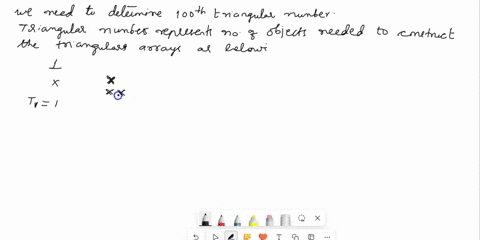 we need to determine 100th triangular number.
Triangular number represents no. of objects needed to construct
the triangulars arrays as below:
1
x x
x x
T1 = 1